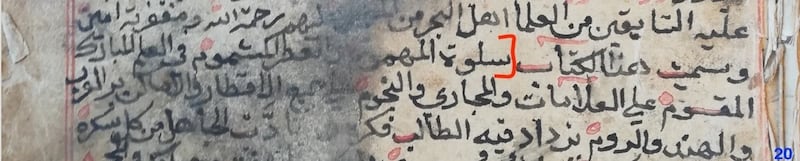 عليه التايقين من العلما اهل البحر من عليهم رحمة الله ومغفرته امين
وسميت هذا الكتاب سلوة المهموم في العلم المبارك
المقسوم علي العلامات والمجاري والنجوم جميع الاقطار والاماكن بر العرب
والهند والروم يزداد فيه الطالب الجاهل من
20